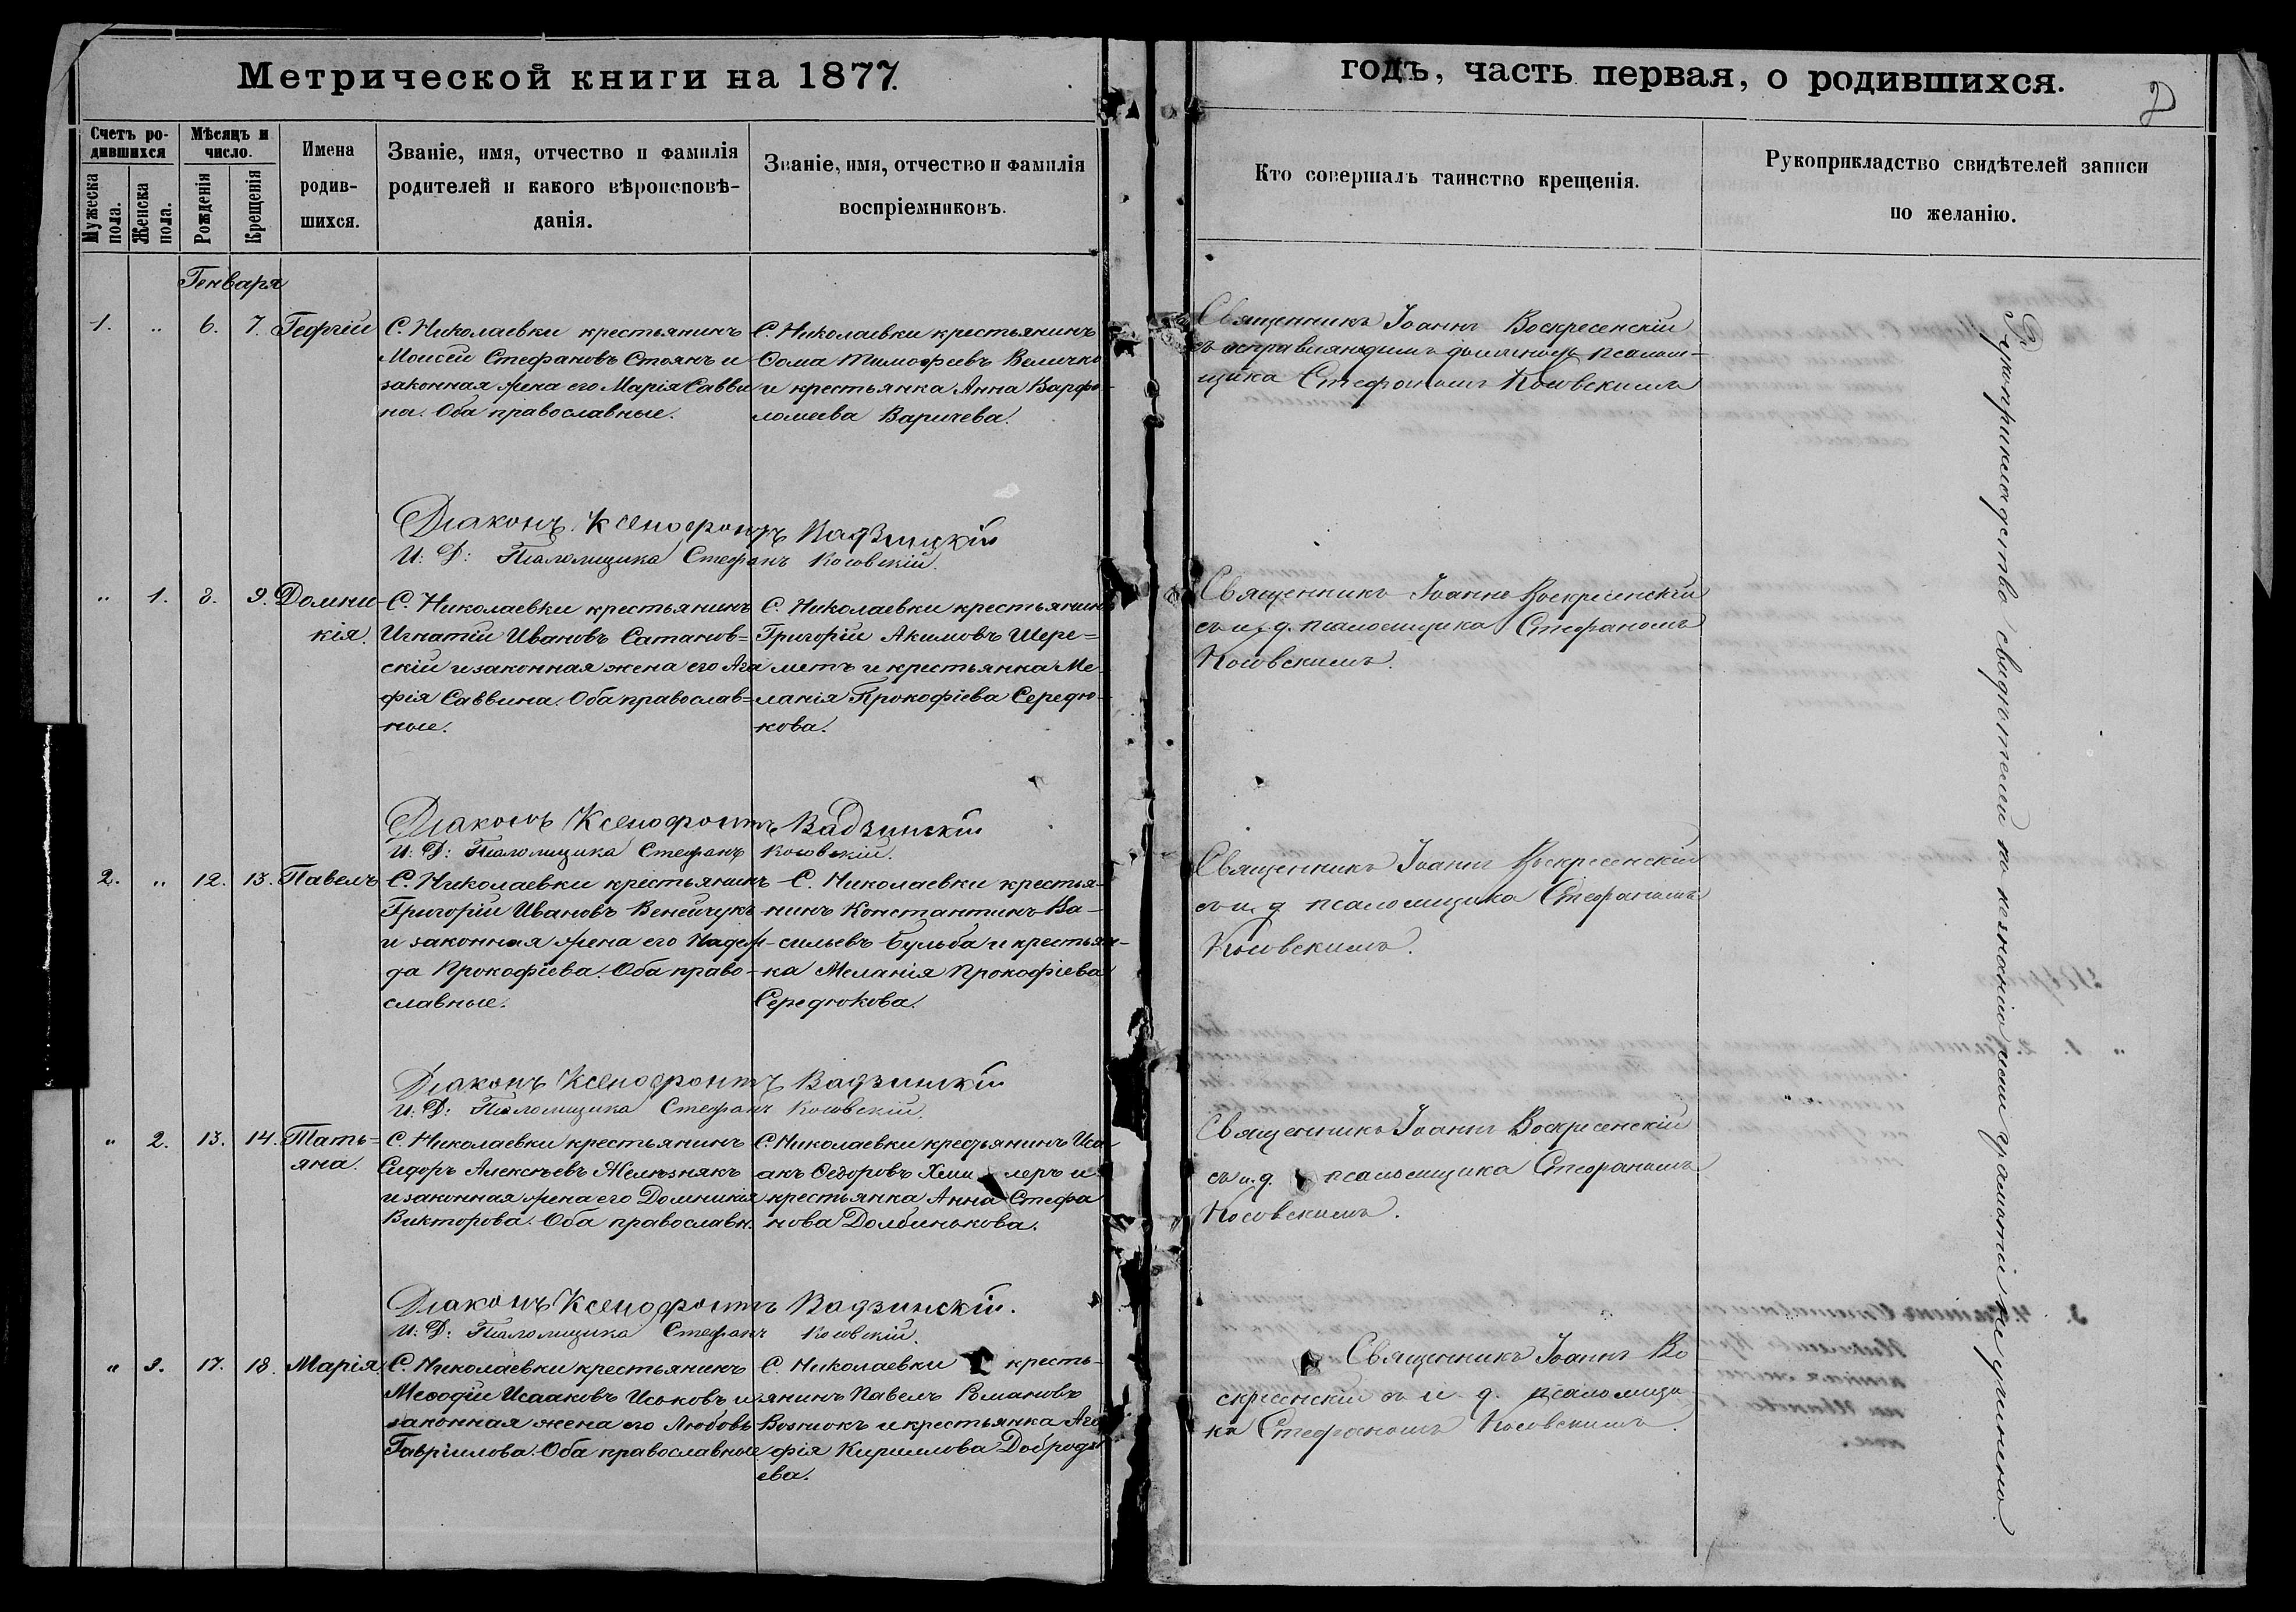 Метрической книги на 1877.
годъ, часть первая, о родившихся.
2
Счетъ ро-
дившихся
Мѣсяцъ и
число.
Мужеска
пола.
Женска
пола.
Рожденія
Крещенія
Имена
родив-
шихся.
Званіе, имя, отчество и фамилія
родителей и какого вѣроисповѣ-
данія.
Званіе, имя, отчество и фамилія
воспріемниковъ.
Кто совершалъ таинство крещенія.
Рукоприкладство свидѣтелей записи
по желанію.
Генваря
1. „ 6. 7. Георгій
С. Николаевки крестьянинъ
Моисей Стефановъ Стоянъ и
законная жена его Марія Савви
на. Оба православные.
С. Николаевки крестьянинъ
Ѳома Тимофеевъ Величко
и крестьянка Анна Варфо-
ломеева Варичева.
Священникъ Іоаннъ Воскресенскій
съ исправляющимъ должность псалом-
щика Стефаномъ Косовскимъ
Діаконъ Ксенофонтъ Вадзинскій
И: Д: Псаломщика Стефанъ Косовскій.
„ 1. 8. 9. Домни-
кія.
С. Николаевки крестьянинъ
Игнатій Ивановъ Сатанов=
скій и законная жена его Ага
фія Саввина. Оба православ=
ные.
С. Николаевки крестьянинъ
Григорій Акимовъ Шере=
метъ и крестьянка Ме-
ланія Прокофіева Середю-
кова.
Священникъ Іоаннъ Воскресенскій
съ и. д. псаломщика Стефаномъ
Косовскимъ.
Діаконъ Ксенофонтъ Вадзинскій
И: Д: Псаломщика Стефанъ Косовскій.
2. „ 12. 13. Павелъ
С. Николаевки крестьянинъ
Григорій Ивановъ Венейчукъ
и законная жена его Надеж-
да Прокофіева. Оба право-
славные.
С. Николаевки крестья-
нинъ Константинъ Ва-
сильевъ Бульба и крестьян-
ка Меланія Прокофіева
Середюкова.
Священникъ Іоаннъ Воскресенскій
съ и. д псаломщика Стефаномъ
Косовскимъ.
Діаконъ Ксенофонтъ Вадзинскій
И: Д: Псаломщика Стефанъ Косовскій.
„ 2. 13. 14. Тать=
яна.
С. Николаевки крестьянинъ
Сидоръ Алексѣевъ Желѣзнякъ
и законная жена его Домникія
Викторова. Оба православн.
С. Николаевки крестьянинъ Иса
акъ Ѳедоровъ и
крестьянка Анна Стефа
нова Долбинькова.
Священникъ Іоаннъ Воскресенскій
съ и. д. псаломщика Стефаномъ
Косовскимъ.
Діаконъ Ксенофонтъ Вадзинскій.
И: Д: Псаломщика Стефанъ Косовскій.
„ 3. 17. 18. Марія
С. Николаевки крестьянинъ
Меѳодій Исааковъ Иськовъ и
законная жена его Любовь
Гавріилова. Оба православные
С. Николаевки кресть-
янинъ Павелъ Романовъ
Вознюкъ и крестьянка Ага
фія Кириллова Доброд
ева.
Священникъ Іоаннъ Во
скресенскій съ и. д. псаломщи-
ка Стефаномъ Косовскимъ.
Рукоприкладство свидѣтелей по незнанію ими грамоты не учинено.